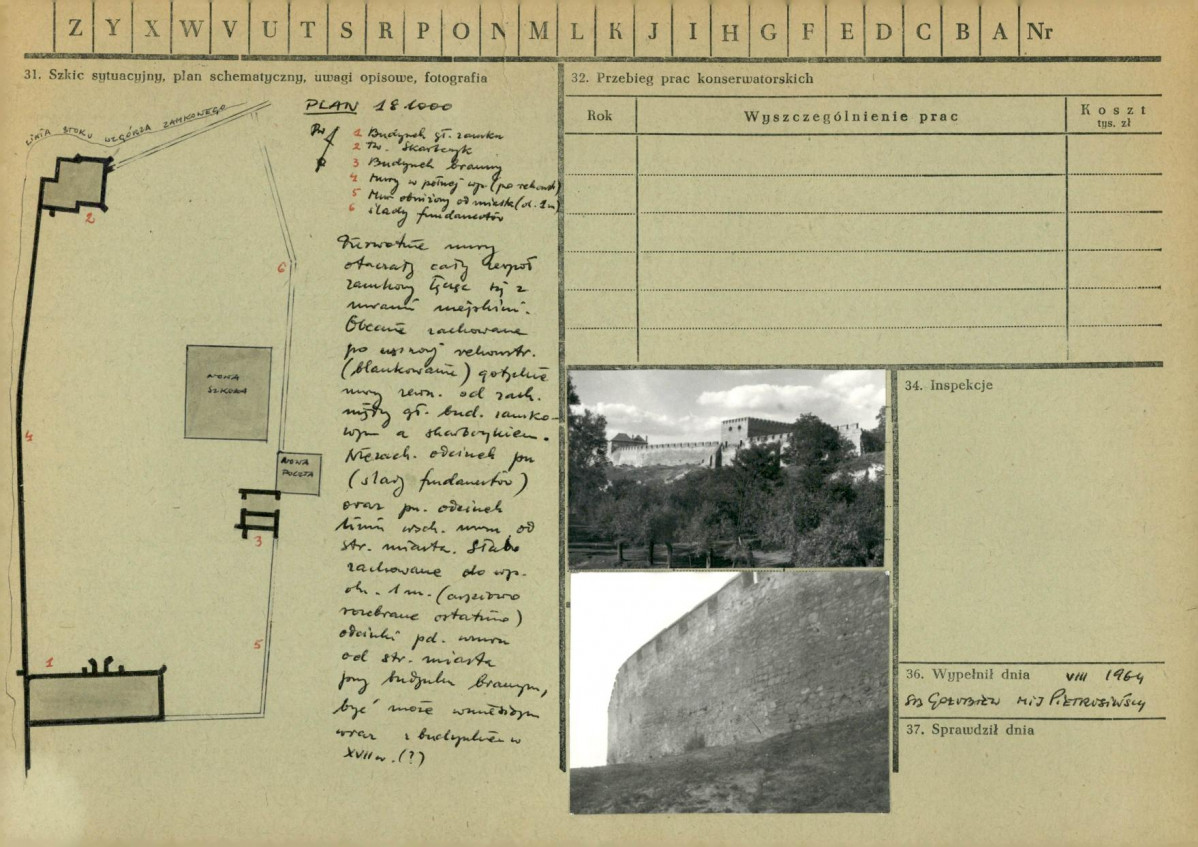 Z Y X W V U T S R P O N M L K J I H G F E D C B A Nr
31. Szkic sytuacyjny, plan schematyczny, uwagi opisowe, fotografia
LINIA STOKU WZGÓRZA ZAMKOWEGO
PLAN 1:1000
1 Budynek gł. zamku
2 Tzw. Skarbczyk
3 Budynek bramny
4 Mury w pełnej wys. (po rekonstr)
5 Mur obniżony od miasta (ok. 1 m)
6 ślady fundamentów
2
6
NOWA
SZKOŁA
4
NOWA
POCZTA
3
5
1
Pierwotnie mury
otaczały cały zespół
zamkowy łącząc się z
murami miejskimi.
Obecnie zachowane
po rekonstr.
(blankowanie) gotyckie
mury zewn. od zach.
między gł. bud. zamko-
wym a skarbczykiem.
Niezach. odcinek pn
(ślady fundamentów)
oraz pn. odcinek
linii wsch. muru od
str. miasta. Słabo
zachowane do wys.
ok. 1 m. (częściowo
rozebrane ostatnio)
odcinki pd. muru
od str. miasta
przy budynku bramnym,
być może wzniesionym
wraz z budynkiem w
XVII w. (?)
32. Przebieg prac konserwatorskich
Rok
Wyszczególnienie prac
Koszt
tys. zł
34. Inspekcje
36. Wypełnił dnia VIII 1964
GOŁUBIEW PIETRUSIŃSKY
37. Sprawdził dnia